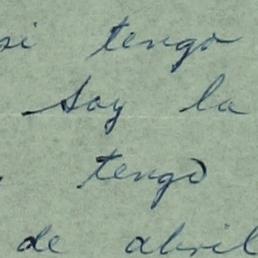 si tengo
Soy la
tengo
de abril